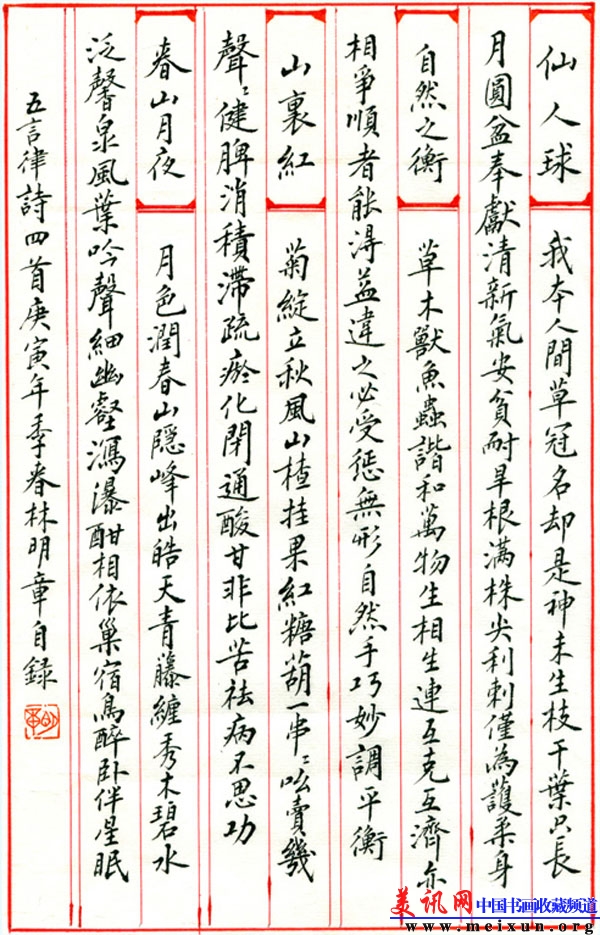 仙人球 我本人間草冠名却是神未生枝干葉只長
月圓盆奉獻清新氣安貧耐旱根滿株尖利刺僅為護柔身
自然之衡 草木獸魚蟲諧和萬物生相生連互克互濟亦
相爭順者能得益違之必受懲無形自然手巧妙調平衡
山裏紅 菊綻立秋風山楂挂果紅糖葫一串〻吆賣幾
聲〻健脾消積滯疏瘀化閉通酸甘非比苦祛病不思功
春山月夜 月色潤春山隱峰出皓天青藤纏秀木碧水
泛馨泉風葉吟聲細幽壑瀑酣相依巢宿鳥醉卧伴星眠
五言律詩四首庚寅年季春林明章自録
美讯网 中国书画收藏频道
www.meixun.org